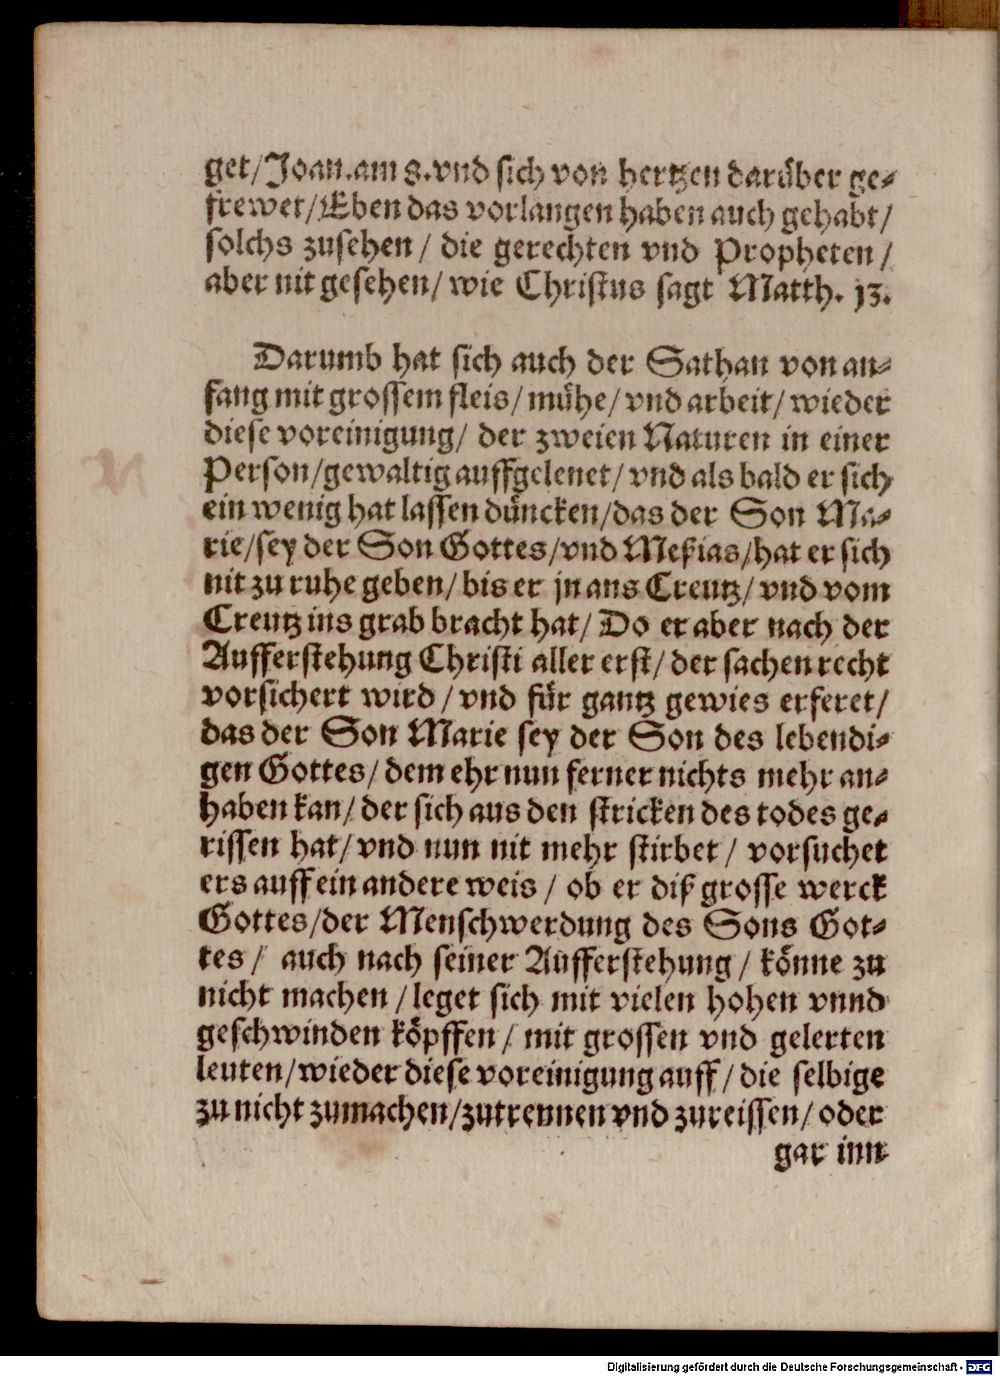 get/Joan.am 8.vnd sich von hertzen darüber ge-
frewet/Eben das vorlangen haben auch gehabt/
solchs zusehen/ die gerechten vnd Propheten/
aber nit gesehen/ wie Christus sagt Matth. 13.
Darumb hat sich auch der Sathan von an-
fang mit grossem fleis/ mühe/ vnd arbeit/ wieder
diese voreinigung/ der zweien Naturen in einer
Person/gewaltig auffgelenet/ vnd als bald er sich
ein wenig hat lassen düncken/das der Son Ma-
rie/sey der Son Gottes/vnd Meßias/hat er sich
nit zu ruhe geben/ bis er jn ans Creutz/ vnd vom
Creutz ins grab bracht hat/ Do er aber nach der
Aufferstehung Christi aller erst/ der sachen recht
vorsichert wird/ vnd für gantz gewies erferet/
das der Son Marie sey der Son des lebendi-
gen Gottes/ dem ehr nun ferner nichts mehr an-
haben kan/ der sich aus den stricken des todes ge-
rissen hat/ vnd nun nit mehr stirbet/ vorsuchet
ers auff ein andere weis/ ob er diß grosse werck
Gottes/der Menschwerdung des Sons Got-
tes/ auch nach seiner Aufferstehung/ könne zu
nicht machen/leget sich mit vielen hohen vnnd
geschwinden köpffen/ mit grossen vnd gelerten
leuten/wieder diese voreinigung auff/ die selbige
zu nicht zumachen/zutrennen vnd zureissen/ oder
gar inn
Digitalisierung gefördert durch die Deutsche Forschungsgemeinschaft - DFG